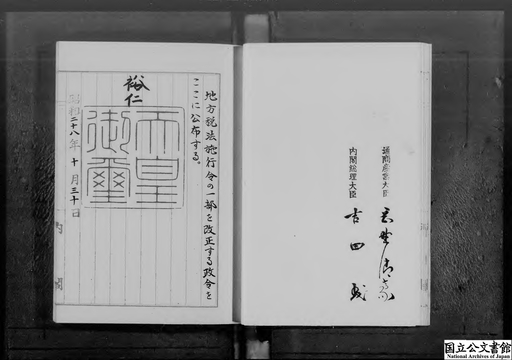 通商産業大臣
内閣総理大臣 吉田茂
地方税法施行令の一部を改正する政令を
ここに公布する。
裕仁
天皇
御璽
昭和二十八年十月三十日
国立公文書館
National Archives of Japan